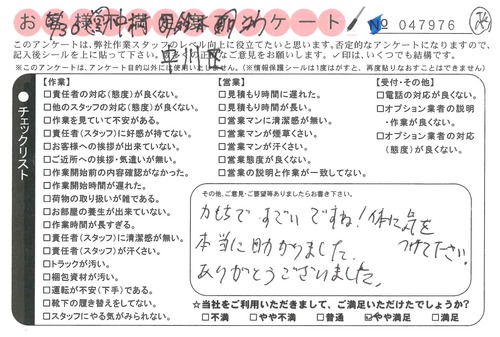 お客様アンケート № 047976
このアンケートは、弊社作業スタッフのレベル向上に役立てたいと思います。否定的なアンケートになりますので、
記入後シールを上に貼って下さい。
意見をお願いします。✓印は、いくつでも結構です。
※このアンケートは、アンケート目的以外には使いません (※情報保護シールは1度はがすと、再度貼りなおすことはできません)
●チェックリスト
【作業】
□責任者の対応(態度)が良くない。
□他のスタッフの対応(態度)が良くない。
□作業を見ていて不安がある。
□責任者(スタッフ)に好感が持てない。
□お客様への挨拶が出来ていない。
□ご近所への挨拶・気遣いが無い。
□作業開始前の内容確認がなかった。
□作業開始時間が遅れた。
□荷物の取り扱いが雑である。
□お部屋の養生が出来ていない。
□作業時間が長すぎる。
□責任者(スタッフ)に清潔感が無い。
□責任者(スタッフ)が汗くさい。
□トラックが汚い。
□梱包資材が汚い。
□運転が不安(下手)である。
□靴下の履き替えをしてない。
□スタッフにやる気がみられない。
【営業】
□見積もり時間に遅れた。
□見積もり時間が長い。
□営業マンに清潔感が無い。
□営業マンが煙草くさい。
□営業マンが汗くさい。
□営業態度が良くない。
□営業の説明と作業が一致してない。
【受付・その他】
□電話の対応が良くない。
□オプション業者の説明
・作業が良くない。
□オプション業者の対応
(態度)が良くない。
その他、ご意見・ご要望等ありましたらお書き下さい。
力もちですごいですね！体に気を
つけて下さい
本当に助かりました。
ありがとうございました。
☆当社をご利用いただきまして、ご満足いただけたでしょうか？
□不満 □やや不満 □普通 ☑やや満足 □満足